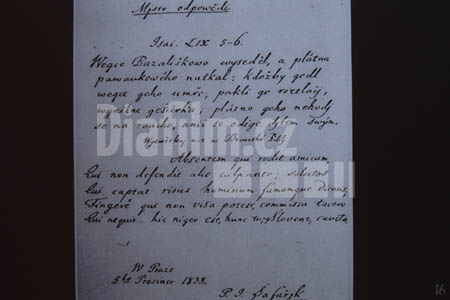 Mjsto odpowědi
Isai. LIX 5-6.
Wegce Bazališkowo wyseděl, a plátna
pawaukowého natkal; kdožby gedl
wegce geho umře; pakli ge
wynikne plátno geho nehodj
se na raucho, aniž se djlem swým.
Absentem qui rodit amicum,
Qui non defendit alio culpante; solutos
Qui captat risus hominum famamque dicacis,
Fingere qui non visa potest, commissa tacere
Qui nequit: hic niger est, hunc tu, Slovene, caveto
Diafilm.cz
W Praze
5ho Prosince 1838.
P. J. Šafařjk
16